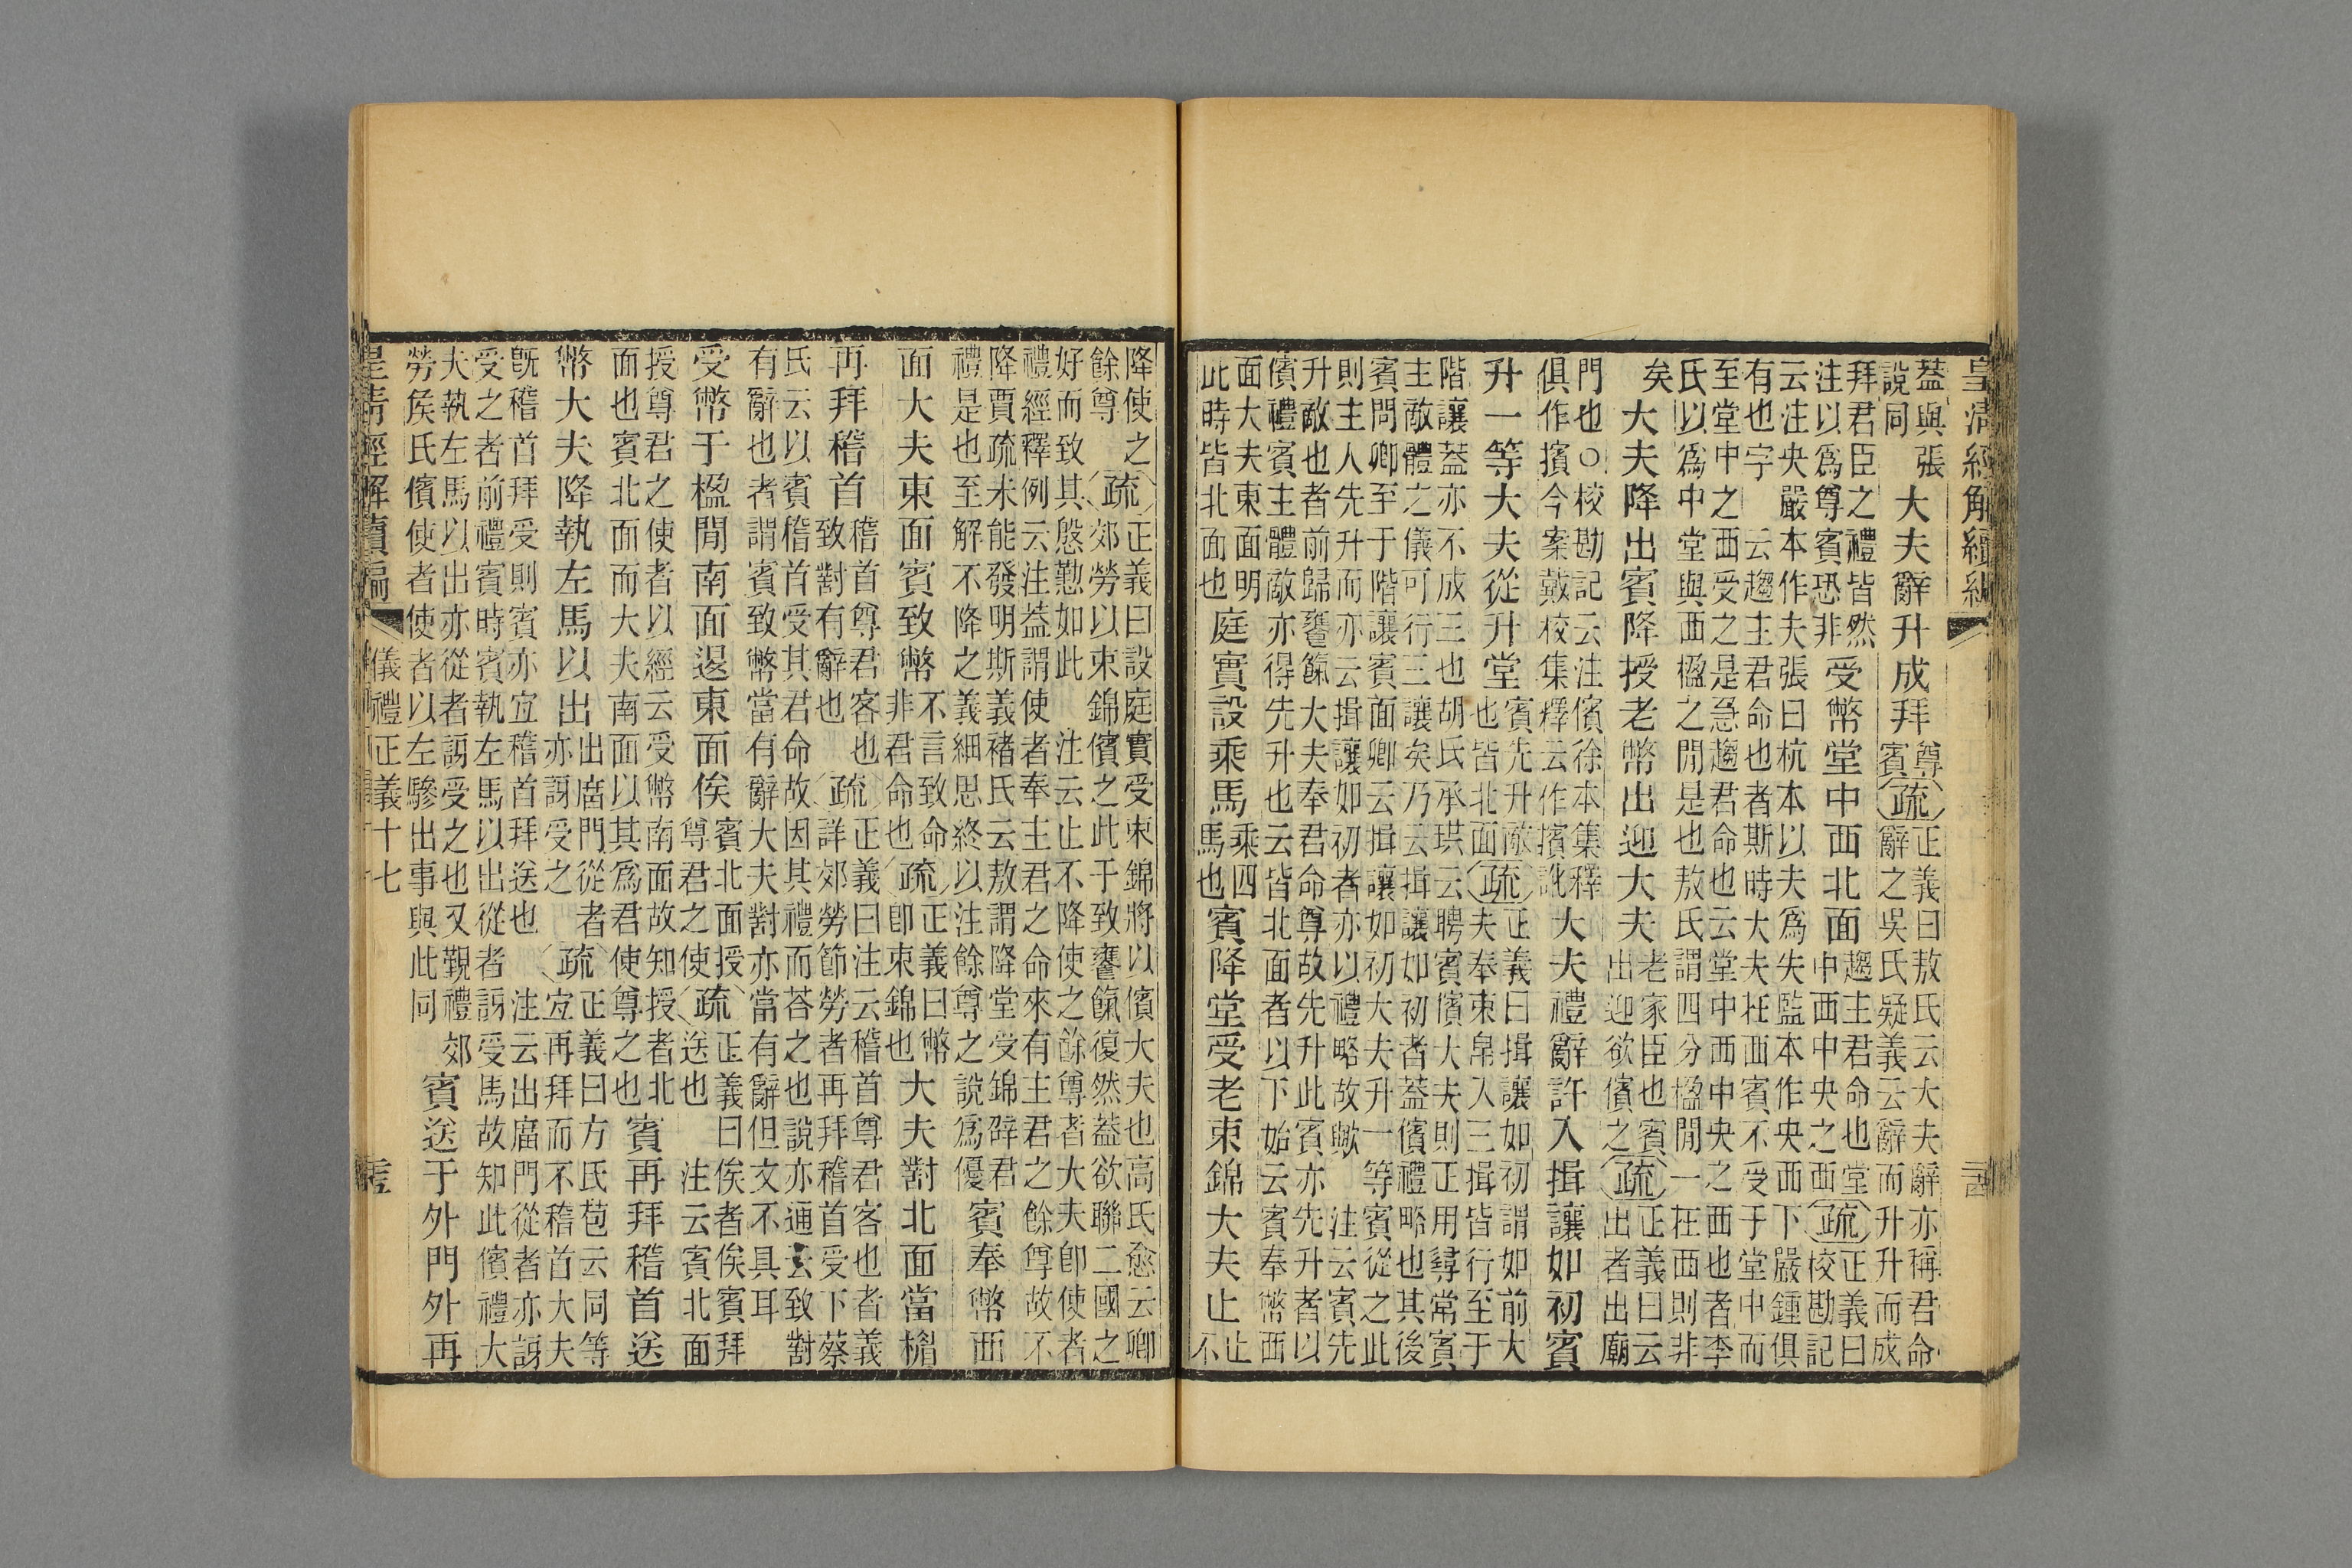 皇清經解續編
葢與張
說同
大夫辭升成拜
尊
賓
疏
正義曰敖氏云大夫辭亦稱君命
辭之吳氏疑義云辭而升升而成
拜君臣之禮皆然
注以爲尊賓恐非
受幣堂中西北面
趨主君命也堂
中西中央之西
疏
正義曰
校勘記
云注央嚴本作夫張曰杭本以夫爲失監本作央西下嚴鍾俱
有也字 云趨主君命也者斯時大夫在西賓不受于堂中而
至堂中之西受之是急趨君命也云堂中西中央之西也者李
氏以爲中堂與西楹之閒是也敖氏謂四分楹閒一在西則非
矣
大夫降出賓降授老幣出迎大夫
老家臣也賓
出迎欲儐之
疏
正義曰云
出者出廟
門也○校勘記云注儐徐本集釋
俱作擯今案戴校集釋云作擯訛
大夫禮辭許入揖讓如初賓
升一等大夫從升堂
賓先升敵
也皆北面
疏
正義曰揖讓如初謂如前大
夫奉束帛入三揖皆行至于
階讓葢亦不成三也胡氏承珙云聘賓儐大夫則正用尋常賓
主敵體之儀可行三讓矣乃云揖讓如初者葢儐禮略也其後
賓問卿至于階讓賓面卿云揖讓如初大夫升一等賓從之此
則主人先升而亦云揖讓如初者亦以禮略故歟 注云賓先
升敵也者前歸饔餼大夫奉君命尊故先升此賓亦先升者以
儐禮賓主體敵亦得先升也云皆北面者以下始云賓奉幣西
面大夫東面明
此時皆北面也
庭實設乘馬
乘四
馬也
賓降堂受老束錦大夫止
止
不
降使之
餘尊
疏
正義曰設庭實受束錦將以儐大夫也高氏愈云卿
郊勞以束錦儐之此于致饔餼復然葢欲聯二國之
好而致其慇懃如此 注云止不降使之餘尊者大夫卽使者
禮經釋例云注葢謂使者奉主君之命來有主君之餘尊故不
降賈疏未能發明斯義褚氏云敖謂降堂受錦辟君
禮是也至解不降之義細思終以注餘尊之說爲優
賓奉幣西
面大夫東面賓致幣
不言致命
非君命也
疏
正義曰幣
卽束錦也
大夫對北面當楣
再拜稽首
稽首尊君客也
致對有辭也
疏
正義曰注云稽首尊君客也者義
詳郊勞節勞者再拜稽首受下蔡
氏云以賓稽首受其君命故因其禮而荅之也說亦通云致對
有辭也者謂賓致幣當有辭大夫對亦當有辭但文不具耳
受幣于楹閒南面退東面俟
賓北面授
尊君之使
疏
正義曰俟者俟賓拜
送也 注云賓北面
授尊君之使者以經云受幣南面故知授者北
面也賓北面而大夫南面以其爲君使尊之也
賓再拜稽首送
幣大夫降執左馬以出
出廟門從者
亦訝受之
疏
正義曰方氏苞云同等
宐再拜而不稽首大夫
旣稽首拜受則賓亦宐稽首拜送也 注云出廟門從者亦訝
受之者前禮賓時賓執左馬以出從者訝受馬故知此儐禮大
夫執左馬以出亦從者訝受之也又覲禮郊
勞侯氏儐使者使者以左驂出事與此同
賓送于外門外再
皇清經解續編 儀禮正義十七